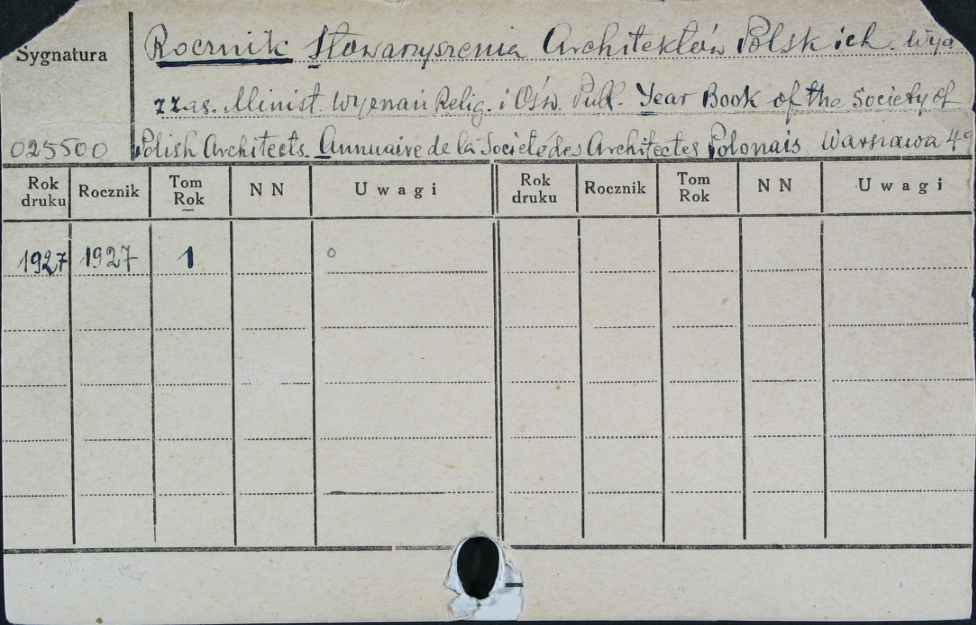 Sygnatura
Rocznik Stowarzyszenia Architektów Polskich. Wyd
z zas. Minist. Wyznań Relig. i Ośw. Publ. Year Book of the Society of
025500 Polish Architects. Annuaire de la Societé des Architectes Polonais Warszawa 4°
Rok druku Rocznik Tom Rok NN Uwagi Rok druku Rocznik Tom Rok NN Uwagi
1927 1927 1 o